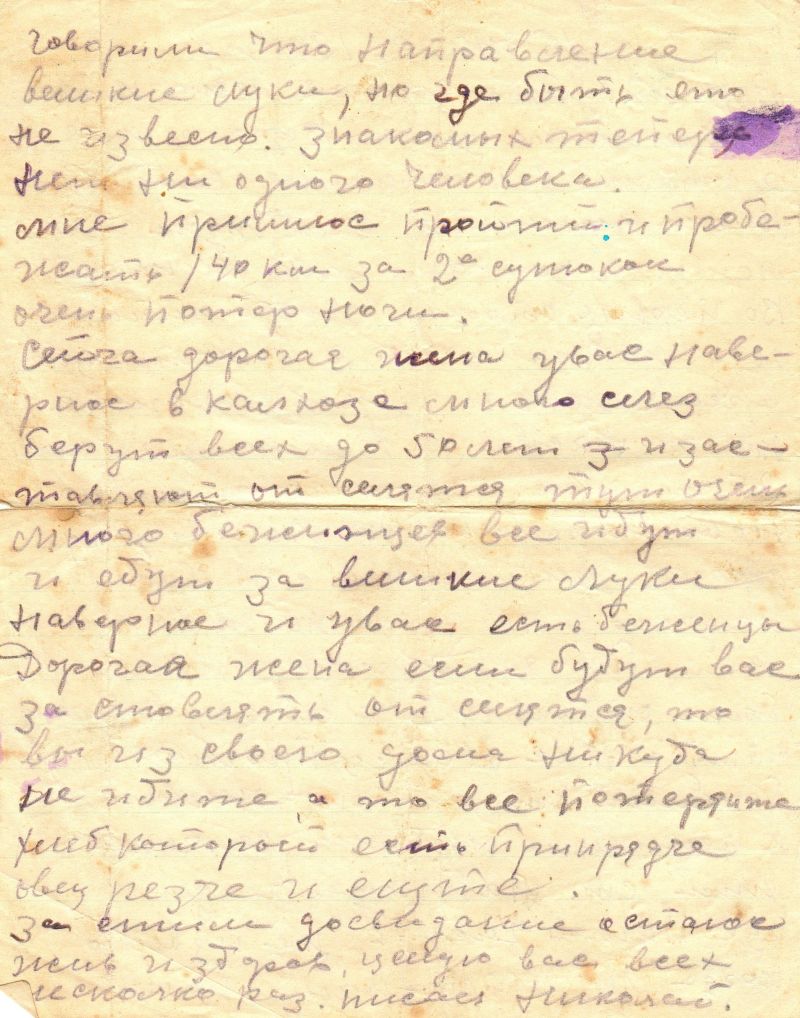 говорили что направление
великие луки, но где быть ето
не извесно. знакомых тепер
нет ни одного человека.
мне пришлос пройти и пробе-
жать 140 км за 2а сутокак
очень потер ноги.
сейча дорогая жена увас наве-
рное в калхозе много слез
берут всех до 50 лет з изас-
тавляют от селятся тут очень
много беженцев все идут
и едут за великие луки
наверное и увас есть беженцы
Дорогая жена если будут вас
за стовлять от селятся, то
вы из своего дома никуда
не идите а то все потеряите
хлеб которыи есть припрядче
овец резче и ешуте.
за етим досвидание остаюс
жив издоров, целую вас всех
несколко раз. писал Николай.